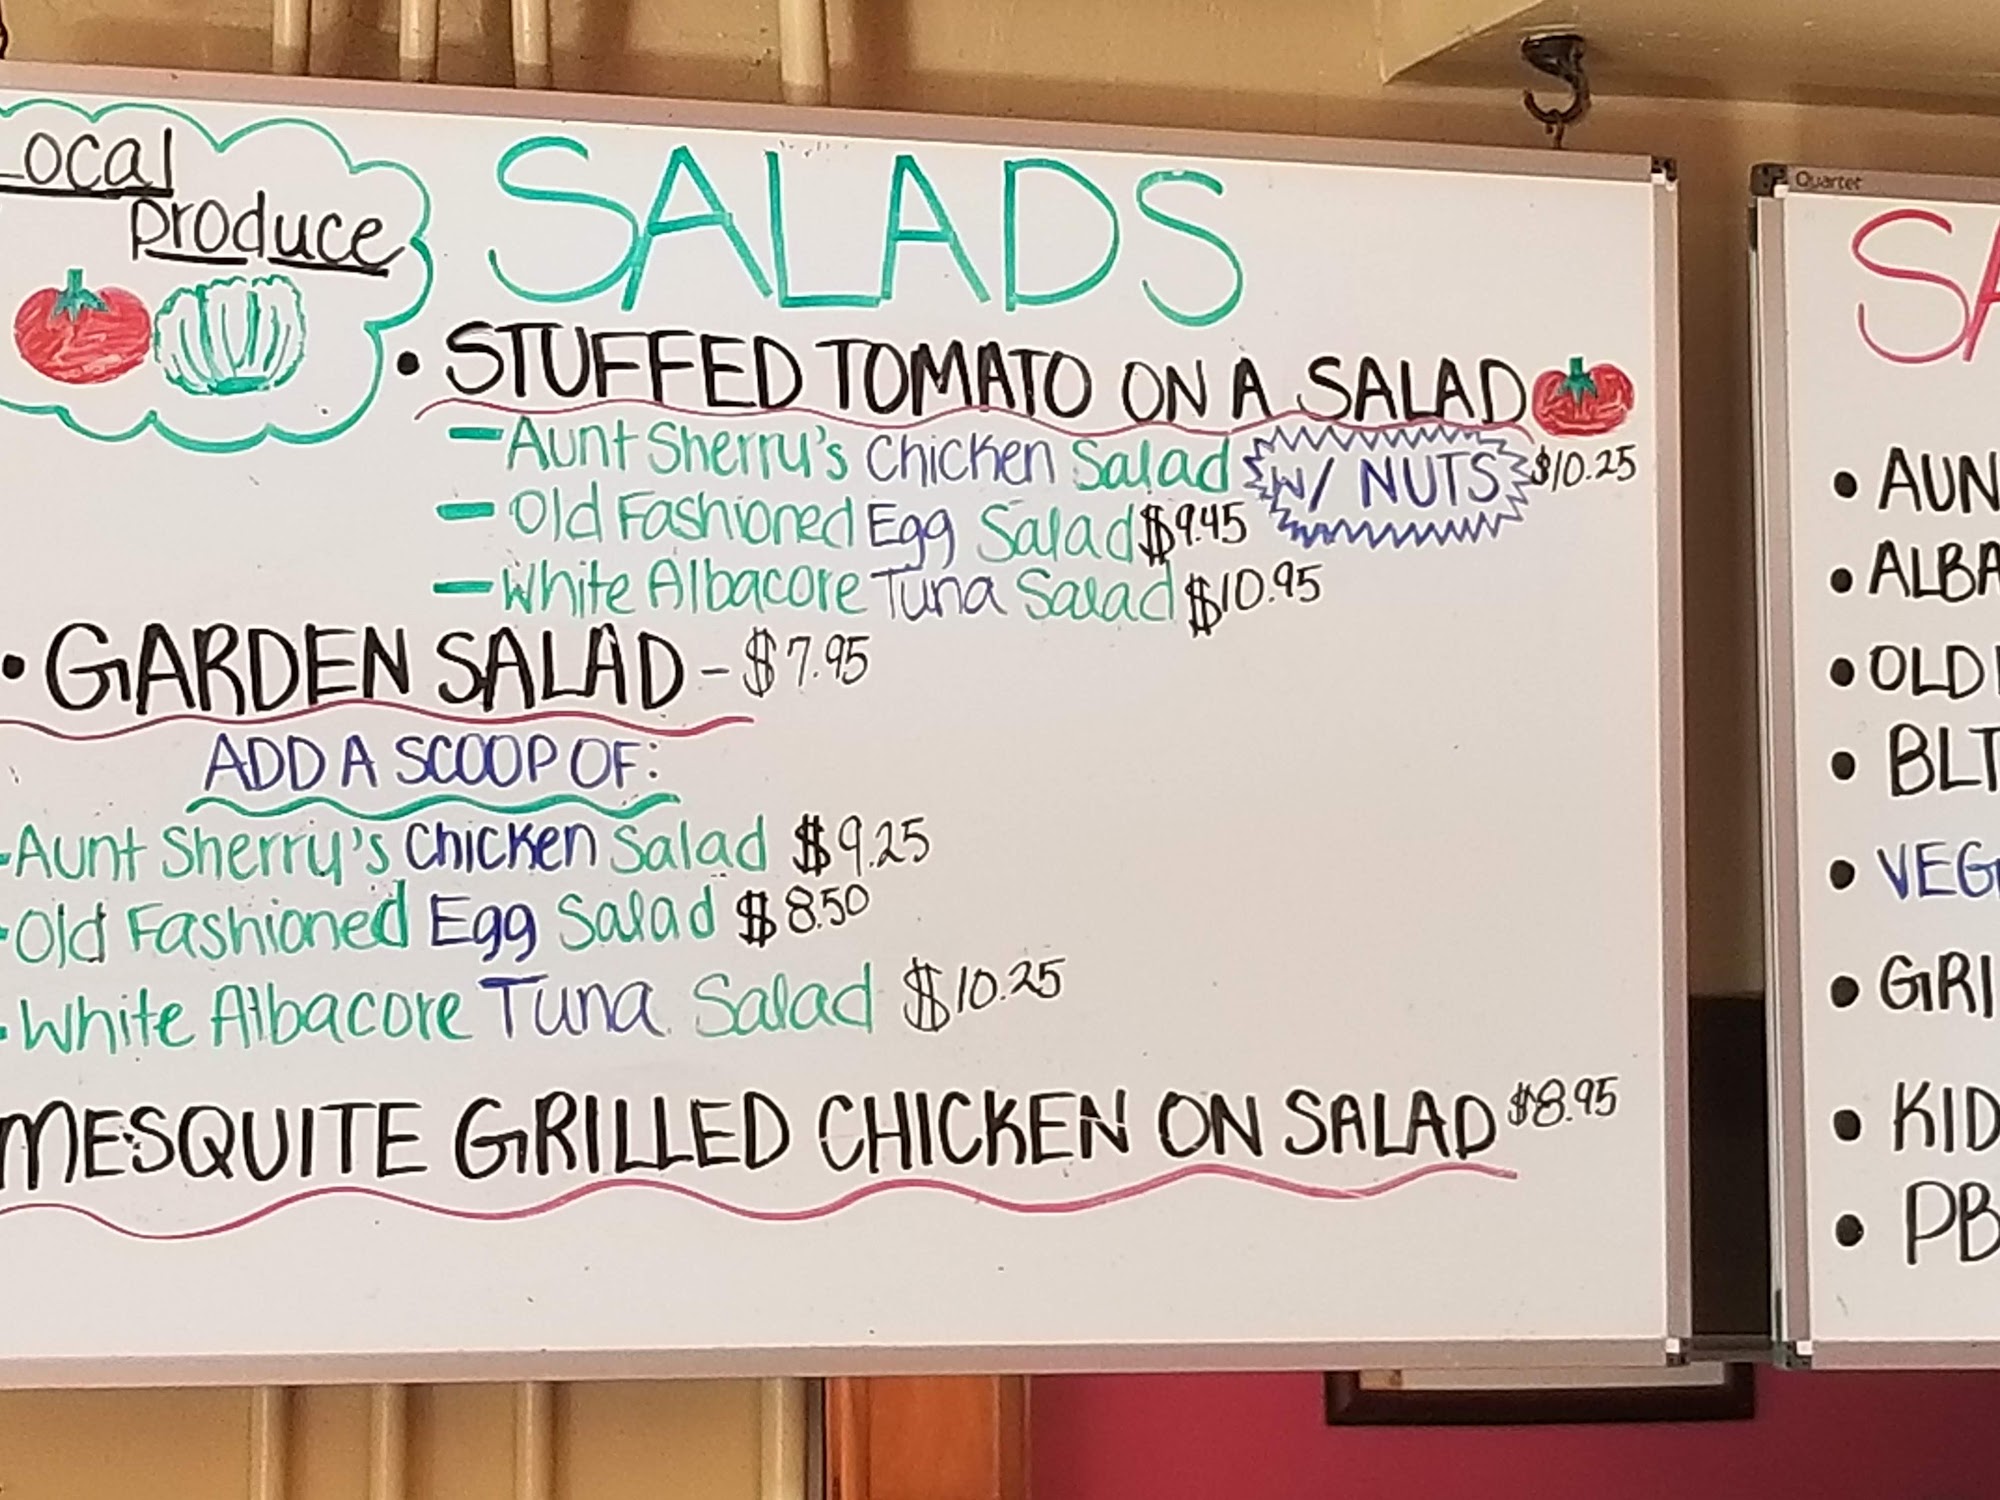 Local
Produce
SALADS
• STUFFED TOMATO ON A SALAD
- Aunt Sherry's Chicken Salad W/ NUTS $10.25
- Old Fashioned Egg Salad $9.45
- White Albacore Tuna Salad $10.95
• GARDEN SALAD - $7.95
ADD A SCOOP OF:
- Aunt Sherry's Chicken Salad $9.25
- Old Fashioned Egg Salad $8.50
- White Albacore Tuna Salad $10.25
MESQUITE GRILLED CHICKEN ON SALAD $8.95
Quartet
SA
• AUN
• ALBA
• OLD
• BLT
• VEG
• GRI
• KID
• PB